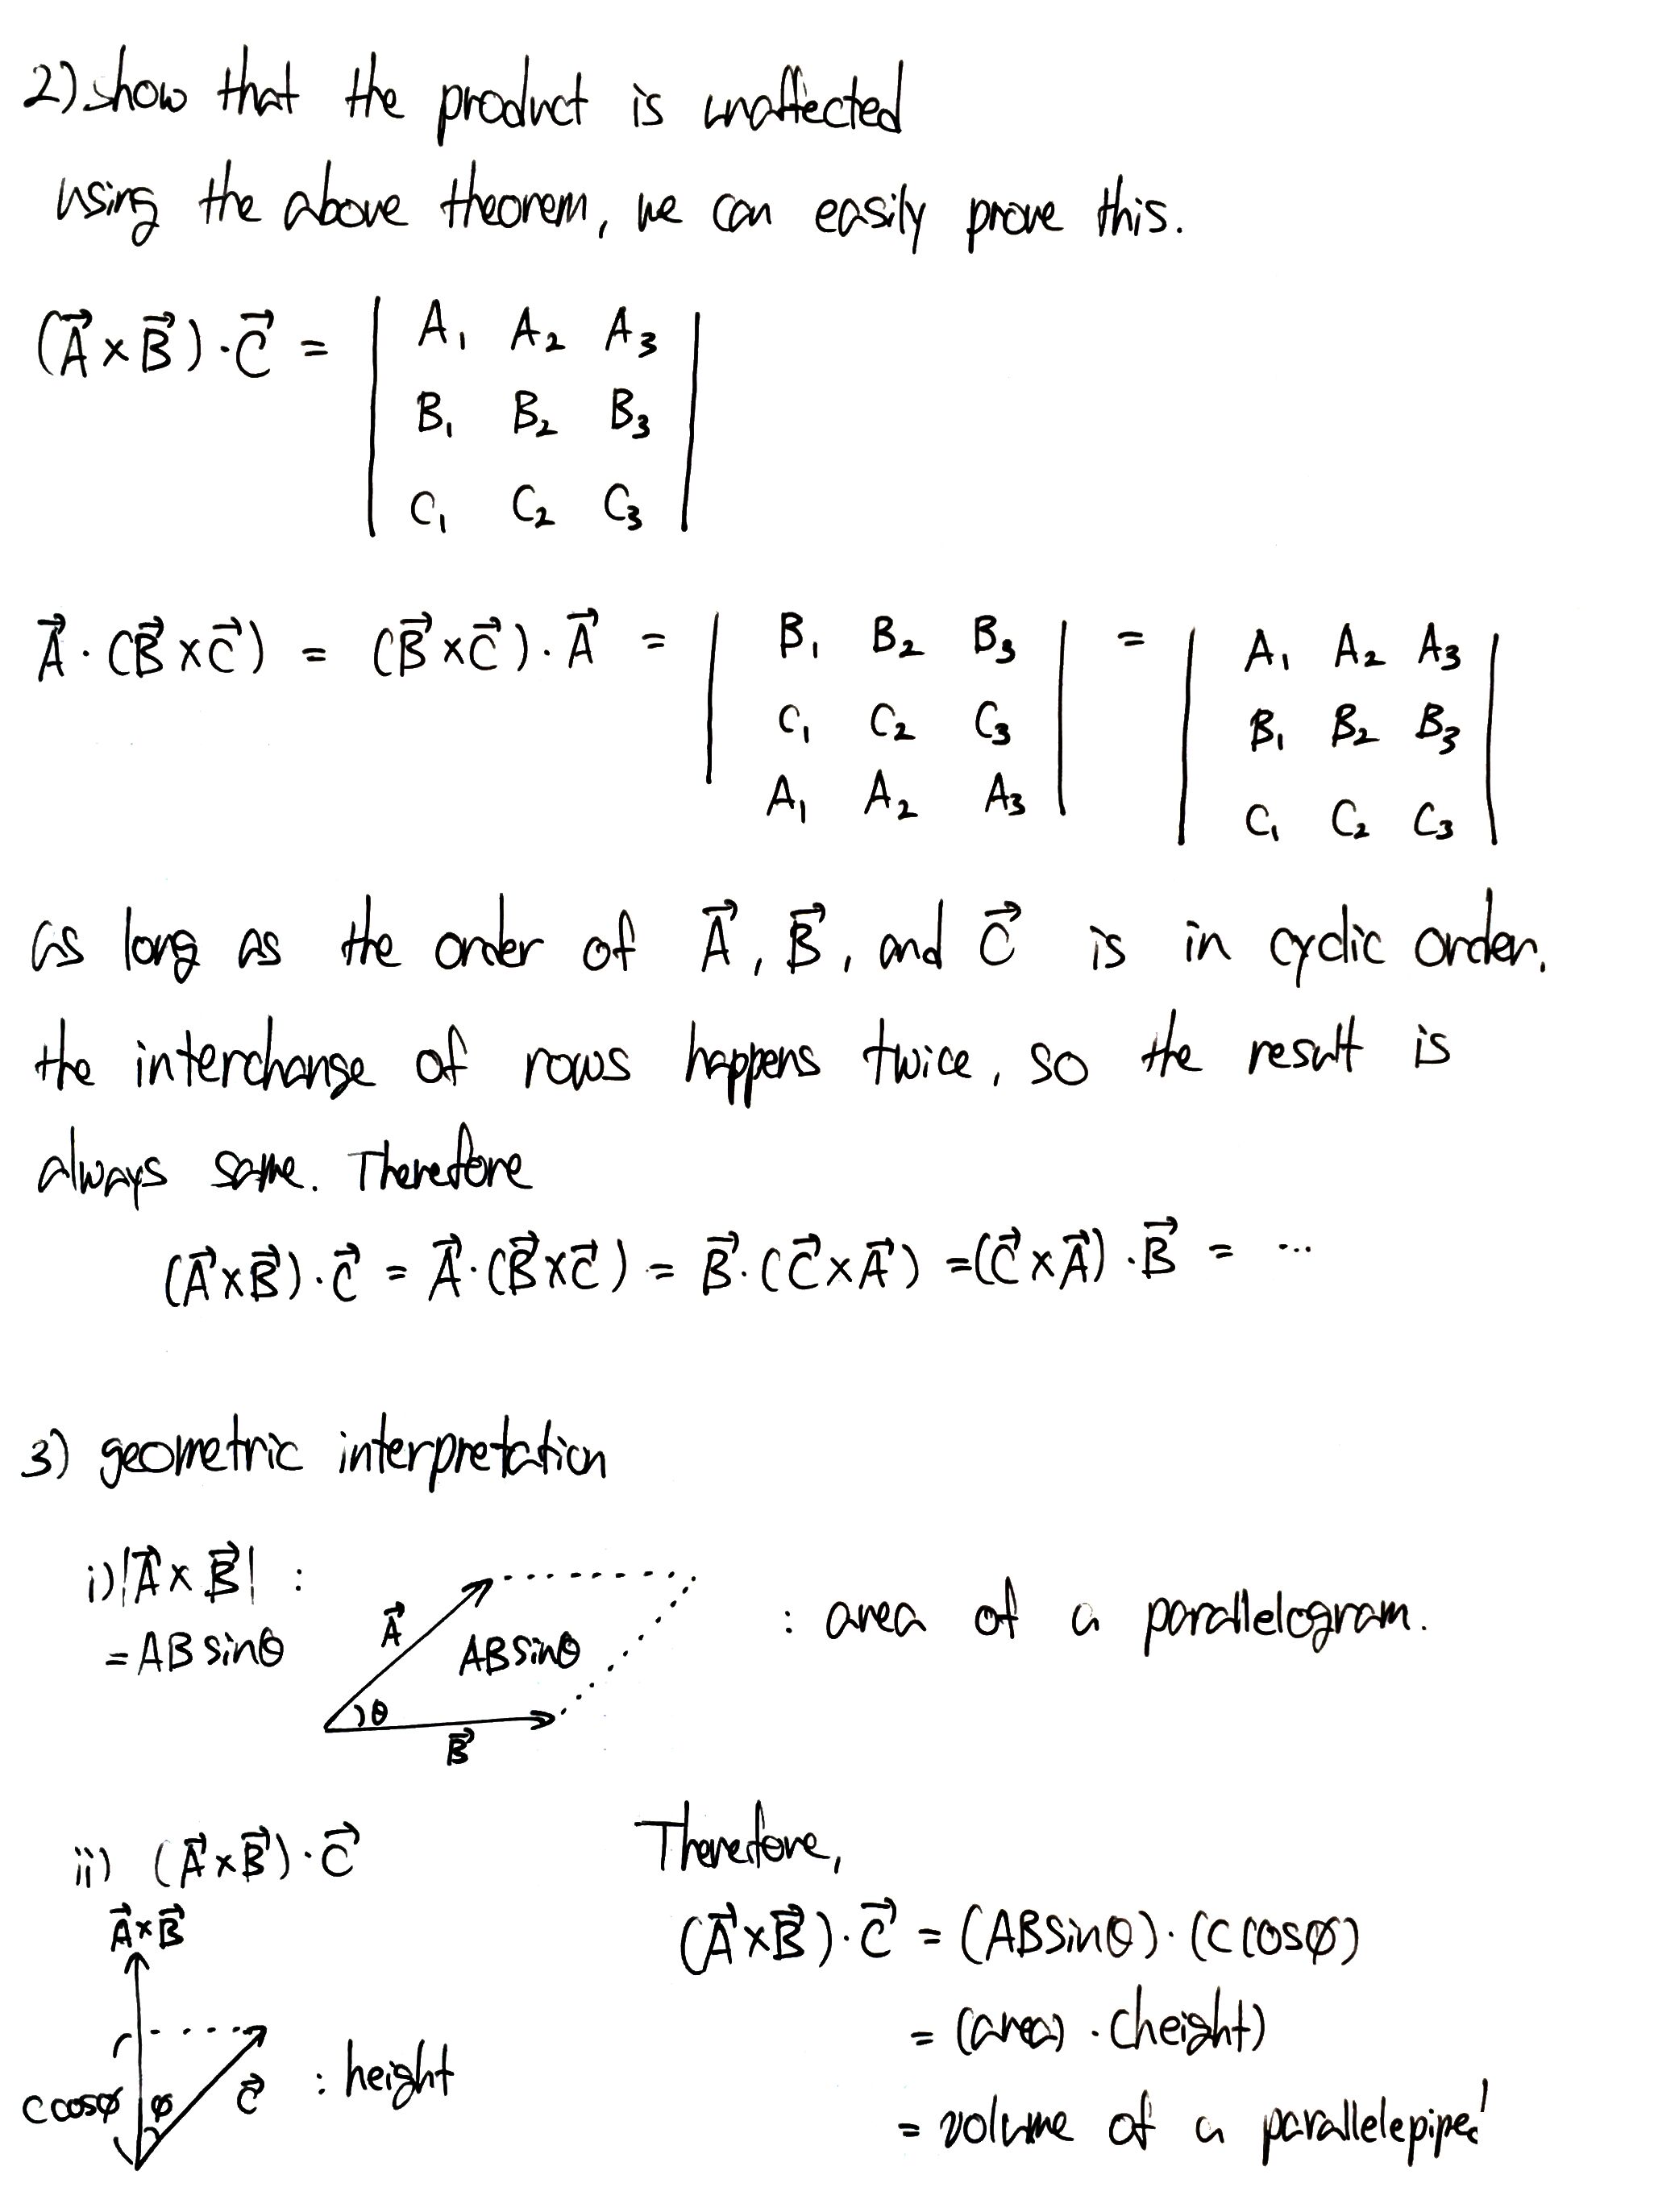 2) show that the product is unaffected
using the above theorem, we can easily prove this.
(A⃗×B⃗)·C⃗ = | A₁ A₂ A₃ |
| B₁ B₂ B₃ |
| C₁ C₂ C₃ |
A⃗·(B⃗×C⃗) = (B⃗×C⃗)·A⃗ = | B₁ B₂ B₃ | = | A₁ A₂ A₃ |
| C₁ C₂ C₃ | | B₁ B₂ B₃ |
| A₁ A₂ A₃ | | C₁ C₂ C₃ |
as long as the order of A⃗, B⃗, and C⃗ is in cyclic order,
the interchange of rows happens twice, so the result is
always same. Therefore
(A⃗×B⃗)·C⃗ = A⃗·(B⃗×C⃗) = B⃗·(C⃗×A⃗) = (C⃗×A⃗)·B⃗ = ...
3) geometric interpretation
i) |A⃗×B⃗| :
= AB sinθ
A⃗
ABsinθ
θ
B⃗
: area of a parallelogram.
ii) (A⃗×B⃗)·C⃗
A⃗×B⃗
C cosφ
φ
C⃗
: height
Therefore,
(A⃗×B⃗)·C⃗ = (ABsinθ)·(C cosφ)
= (area)·(height)
= volume of a parallelepiped